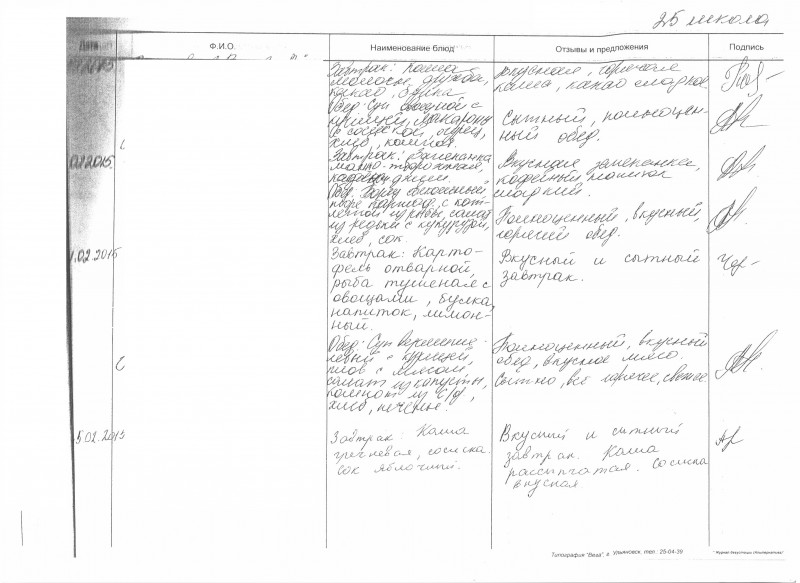 25 школа
Дата Ф.И.О. Наименование блюд Отзывы и предложения Подпись
Завтрак: каша
молочн. дружба,
какао, булка
Вкусная, горячая
каша, какао сладкое
Обед: Суп овощной с
макароны
с сосиской, огурец,
хлеб, компот.
Сытный, полноцен-
ный обед.
02.2015
Завтрак: Запеканка
джем.
Вкусная запеканка,
кофейный напиток
сладкий.
Обед: Борщ
пюре картоф. с кот-
летой из рыбы, салат
из редьки с кукурузой,
хлеб, сок.
Полноценный, вкусный,
горячий обед.
1.02.2015
Завтрак: Карто-
фель отварной,
рыба тушеная с
овощами, булка,
напиток, лимон-
ный.
Вкусный и сытный
завтрак.
Чер-
Обед: Суп вермише-
левый с курицей,
плов с мясом,
салат из капусты,
компот из с/ф,
хлеб, печенье.
Полноценный, вкусный
обед, вкусное мясо.
Сытно, все горячее, свежее.
5.02.2015
Завтрак: Каша
гречневая, сосиска.
сок яблочный.
Вкусный и сытный
завтрак. Каша
рассыпчатая. Сосиска
вкусная.
Типография "Вега", г. Ульяновск, тел.: 25-04-39